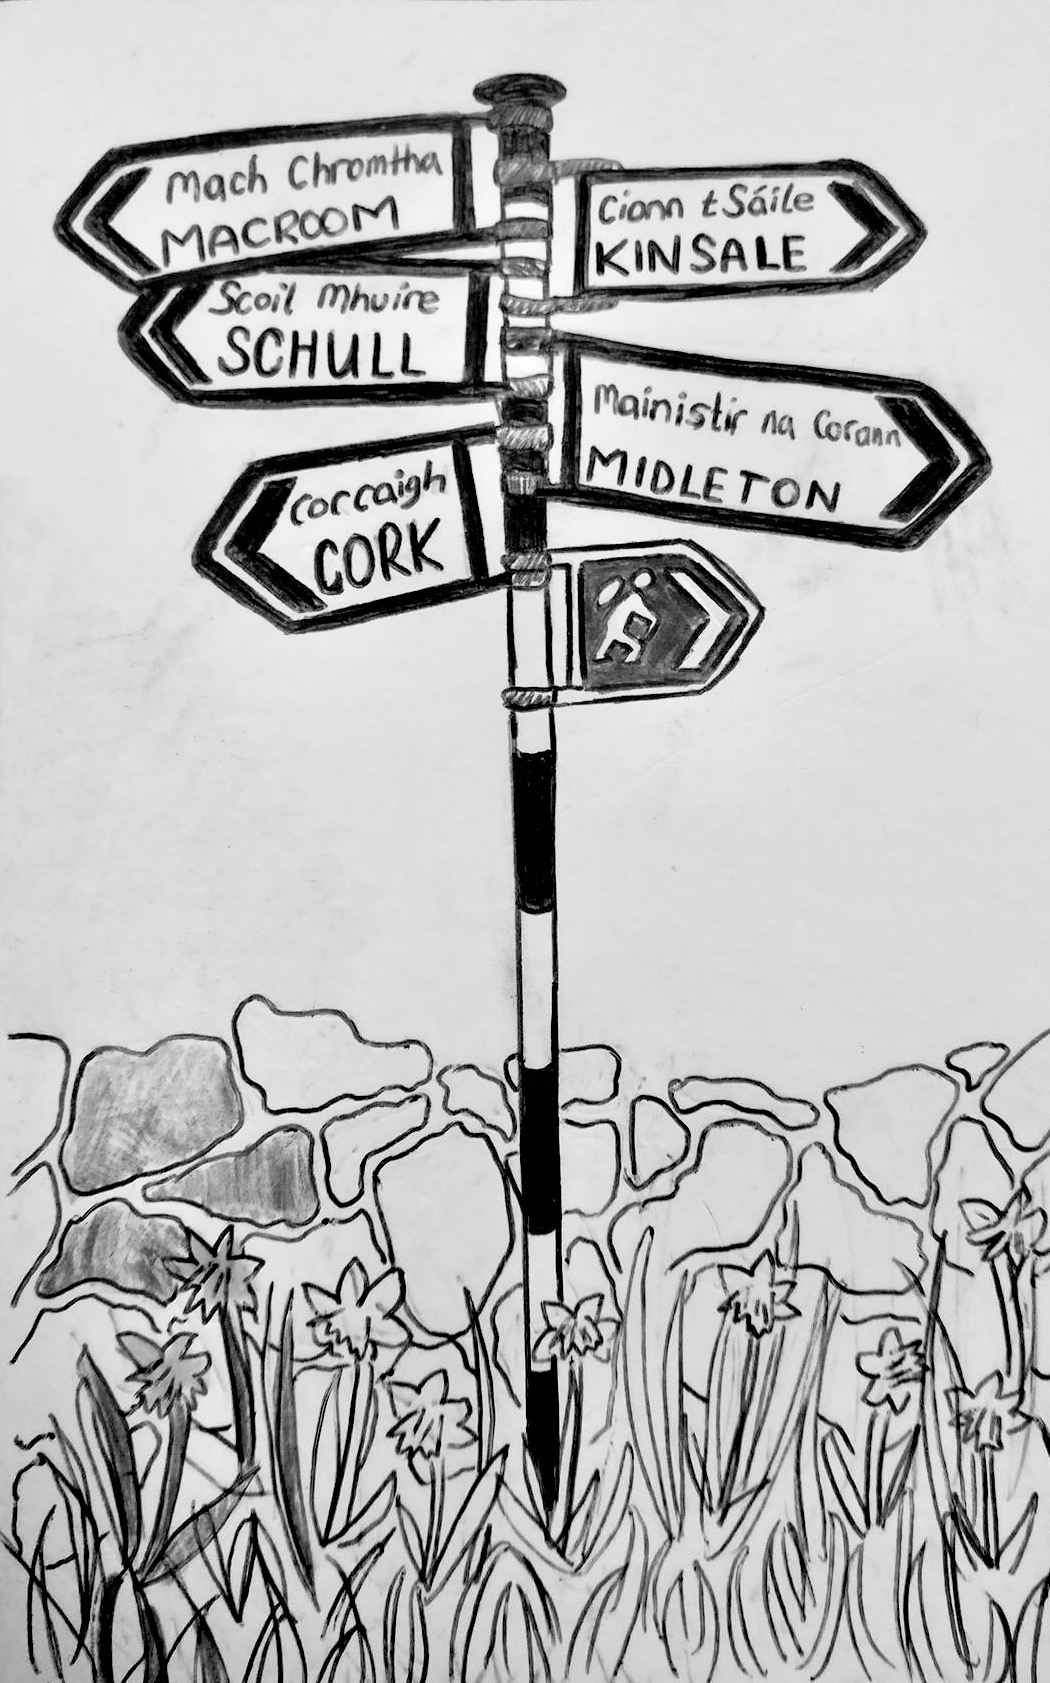 Mach Chromtha
MACROOM
Cionn tSáile
KINSALE
Scoil Mhuire
SCHULL
Mainistir na Corann
MIDLETON
Corcaigh
CORK